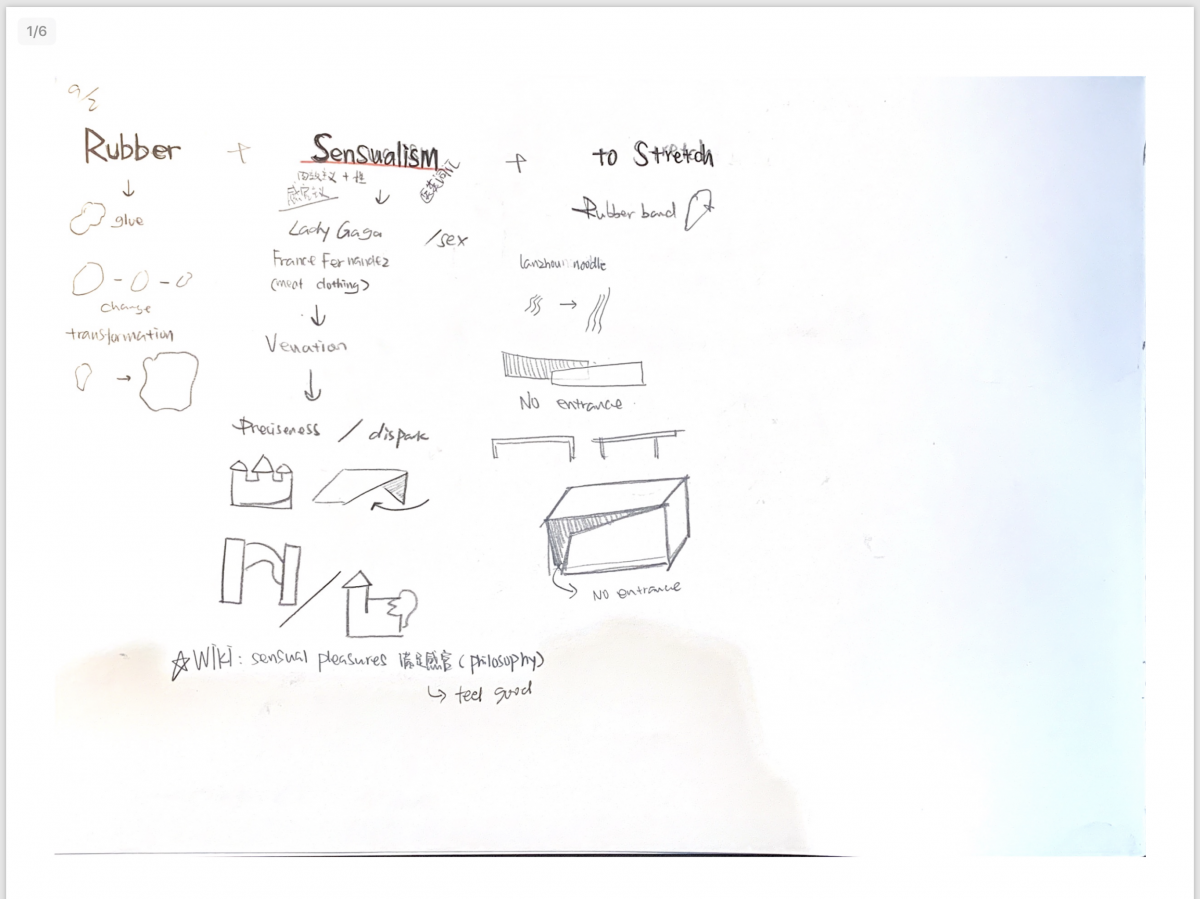 1/6
9/2
Rubber + Sensualism + to Stretch
肉欲主义 + 性
感官主义
glue
Lady Gaga /sex
France Fernandez
(meat clothing)
change
transformation
Venation
Preciseness / dispark
Rubber band
lanzhou noodle
No entrance
No entrance
☆Wiki: sensual pleasures 满足感官 (philosophy)
↳ feel good